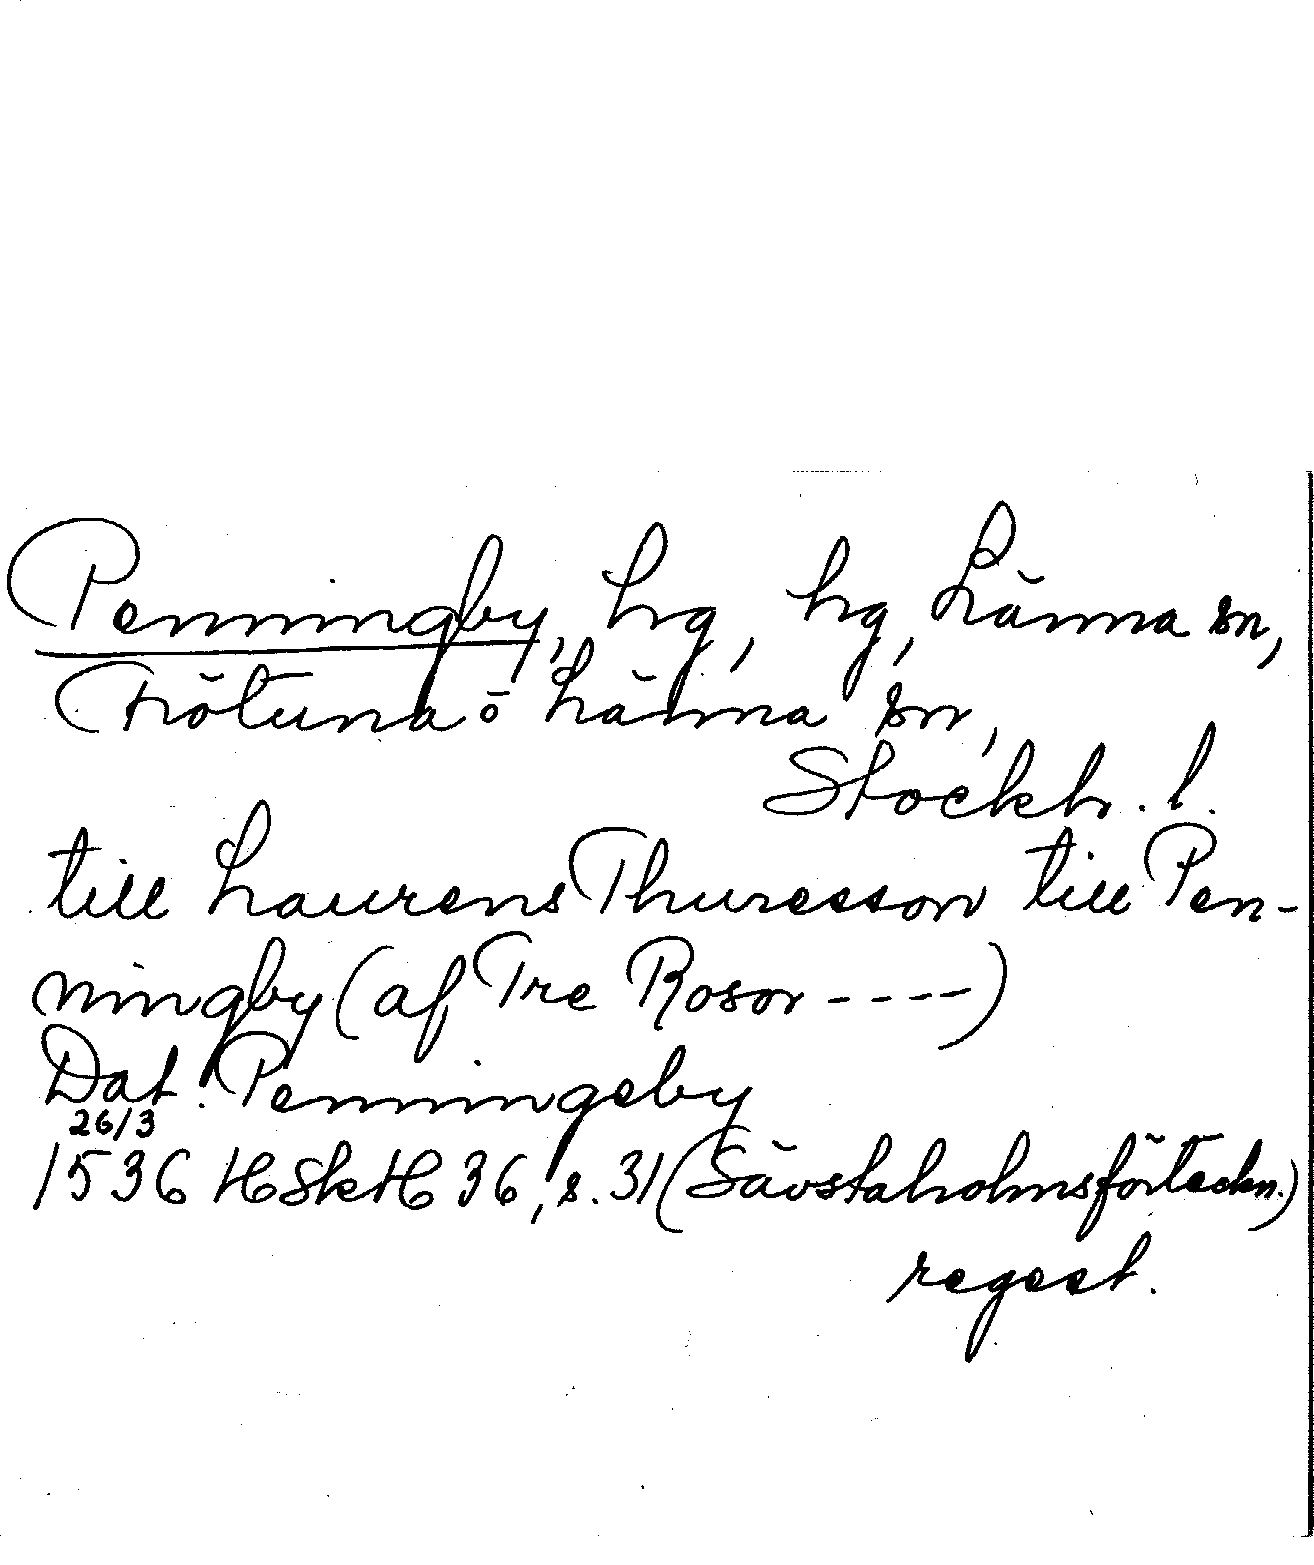 Penningby, hg, hg, Länna sn,
Frötuna o Länna sn,
Stockh. l.
till Laurens Thuresson till Pen-
ningby (af Tre Rosor ----)
Dat. Penningeby
26/3
1536 HSkH 36, s. 31 (Sävstaholmsförteckn.)
regest.